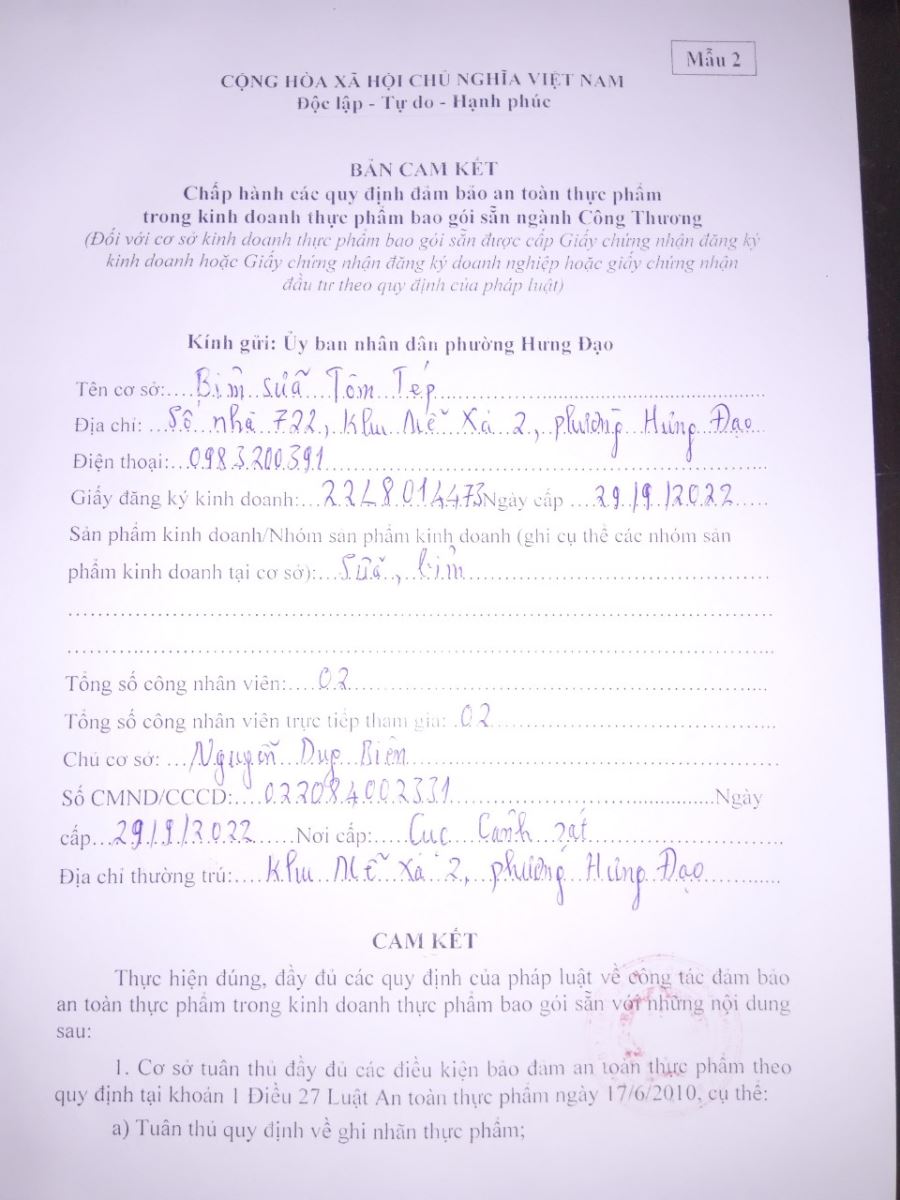 Mẫu 2
CỘNG HÒA XÃ HỘI CHỦ NGHĨA VIỆT NAM
Độc lập - Tự do - Hạnh phúc
BẢN CAM KẾT
Chấp hành các quy định đảm bảo an toàn thực phẩm
trong kinh doanh thực phẩm bao gói sẵn ngành Công Thương
(Đối với cơ sở kinh doanh thực phẩm bao gói sẵn được cấp Giấy chứng nhận đăng ký
kinh doanh hoặc Giấy chứng nhận đăng ký doanh nghiệp hoặc giấy chứng nhận
đầu tư theo quy định của pháp luật)
Kính gửi: Ủy ban nhân dân phường Hưng Đạo
Tên cơ sở: Bỉm sữa Tôm Tép
Địa chỉ: Số nhà 722, Khu Mễ Xá 2, phường Hưng Đạo
Điện thoại: 0983.200391
Giấy đăng ký kinh doanh: 22L8014473 Ngày cấp 29/9/2022
Sản phẩm kinh doanh/Nhóm sản phẩm kinh doanh (ghi cụ thể các nhóm sản
phẩm kinh doanh tại cơ sở): Sữa, bỉm
Tổng số công nhân viên: 02
Tổng số công nhân viên trực tiếp tham gia: 02
Chủ cơ sở: Nguyễn Duy Biên
Số CMND/CCCD: 022084002331 Ngày
cấp 29/9/2022 Nơi cấp: Cục Cảnh sát
Địa chỉ thường trú: Khu Mễ Xá 2, phường Hưng Đạo
CAM KẾT
Thực hiện đúng, đầy đủ các quy định của pháp luật về công tác đảm bảo
an toàn thực phẩm trong kinh doanh thực phẩm bao gói sẵn với những nội dung
sau:
1. Cơ sở tuân thủ đầy đủ các điều kiện bảo đảm an toàn thực phẩm theo
quy định tại khoản 1 Điều 27 Luật An toàn thực phẩm ngày 17/6/2010, cụ thể:
a) Tuân thủ quy định về ghi nhãn thực phẩm;